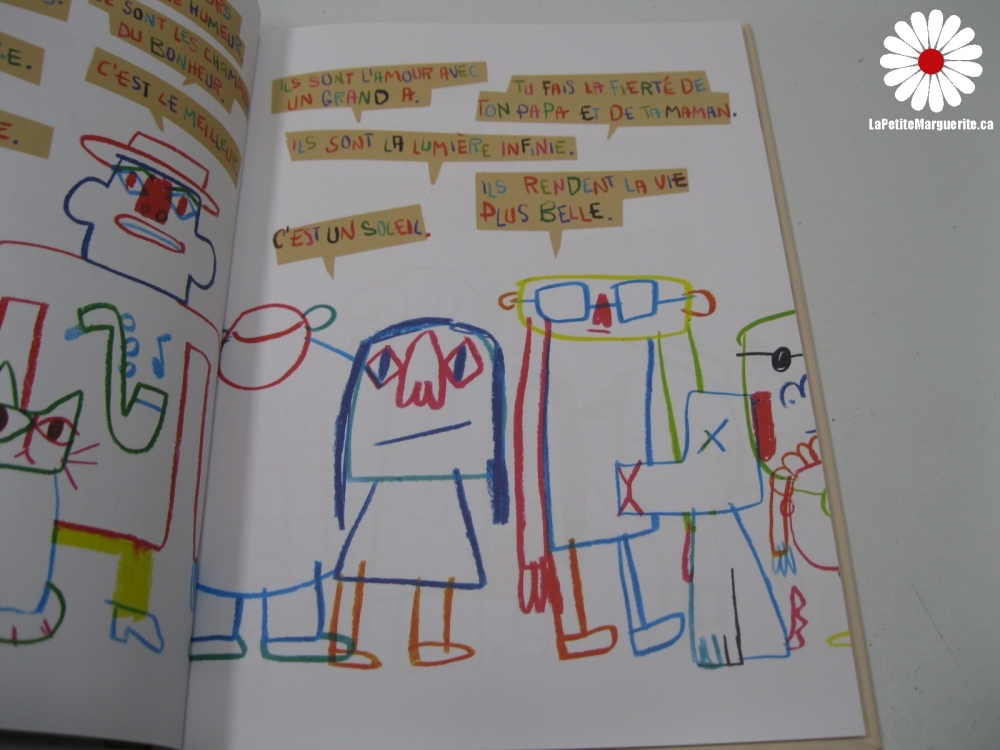 HUMEUR
SONT LES CHAMP
DU BONHEUR.
C'EST LE MEILLEUR
ILS SONT L'AMOUR AVEC
UN GRAND A.
TU FAIS LA FIERTÉ DE
TON PAPA ET DE TA MAMAN.
ILS SONT LA LUMIÈRE INFINIE.
ILS RENDENT LA VIE
PLUS BELLE.
C'EST UN SOLEIL.
LaPetiteMarguerite.ca